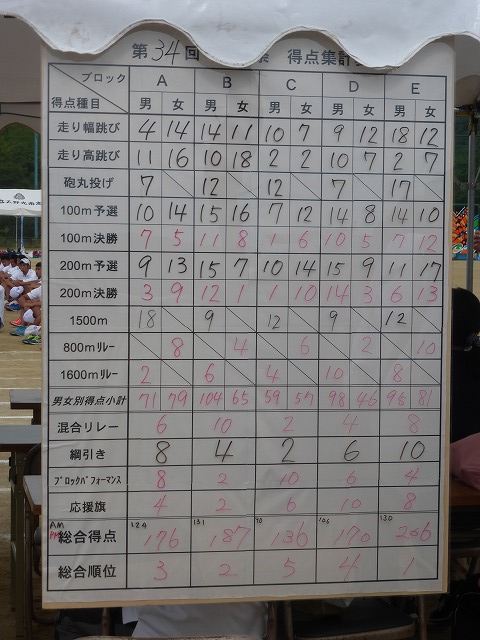 第34回 得点集計
ブロック A B C D E
得点種目 男 女 男 女 男 女 男 女 男 女
走り幅跳び 4 14 14 11 10 7 9 12 18 12
走り高跳び 11 16 10 18 2 2 10 7 2 7
砲丸投げ 7 12 12 7 17
100m予選 10 14 15 16 7 12 14 8 14 10
100m決勝 7 5 11 8 1 6 10 5 7 12
200m予選 9 13 15 7 10 14 15 9 11 17
200m決勝 3 9 12 1 1 10 14 3 6 13
1500m 18 9 12 9 12
800mリレー 8 4 6 2 10
1600mリレー 2 6 4 10 8
男女別得点小計 71 79 104 65 59 57 98 46 95 81
混合リレー 6 10 2 4 8
綱引き 8 4 2 6 10
ブロックパフォーマンス 8 2 10 6 4
応援旗 4 2 6 10 8
AM 124 131 90 106 130
PM 総合得点 176 187 136 170 206
総合順位 3 2 5 4 1